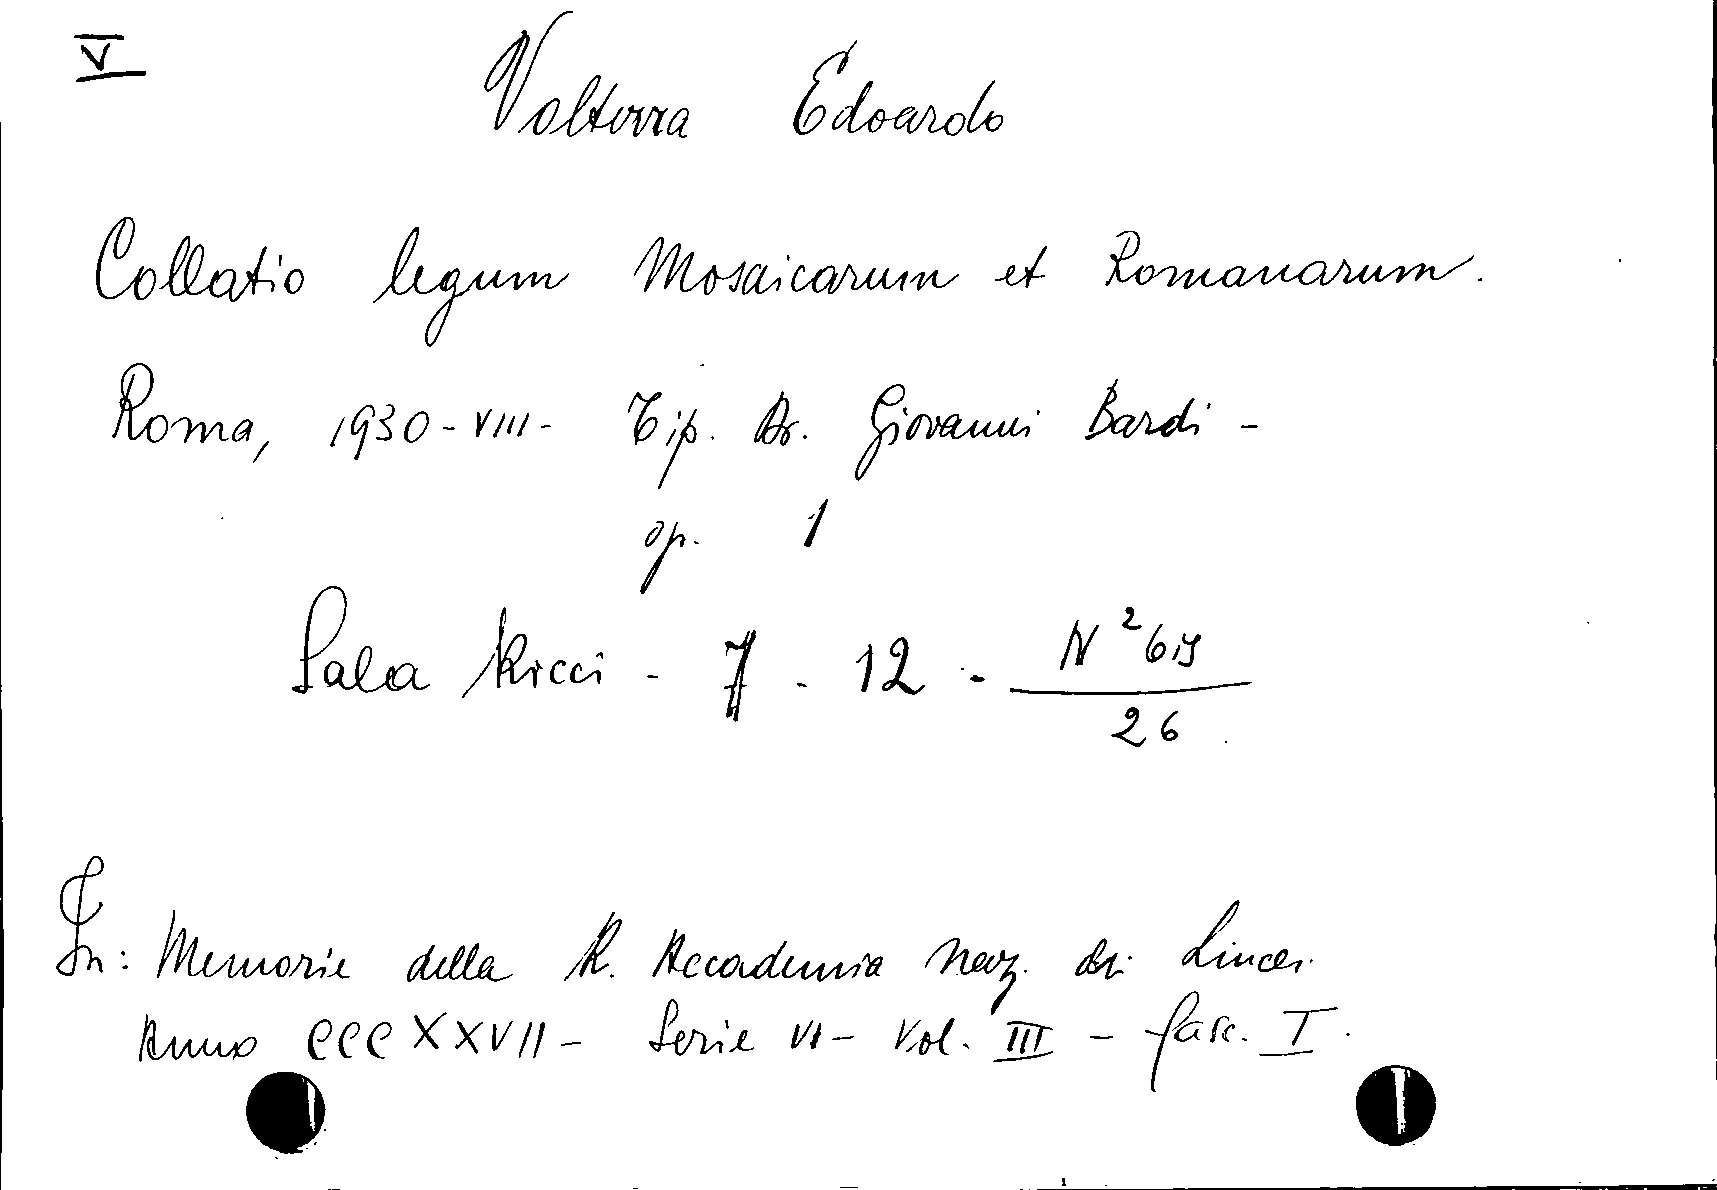 V
Volterra Edoardo
Collatio legum Mosaicarum et Romanarum.
Roma, 1930-VIII- Tip. Dr. Giovanni Bardi -
op. 1
Sala Ricci - 7 - 12 - N² bis
26
In: Memorie della R. Accademia Naz. dei Lincei.
Anno CCCXXVII - Serie VI - Vol. III - fasc. I.